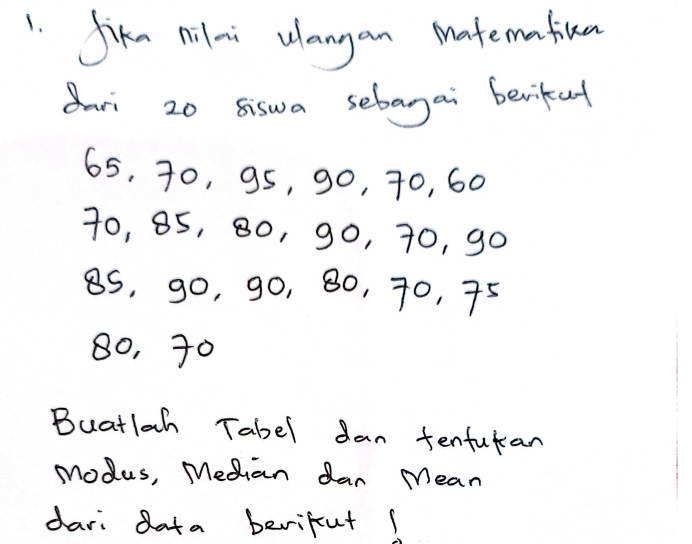 1. Jika nilai ulangan Matematika
dari 20 siswa sebagai berikut
65, 70, 95, 90, 70, 60
70, 85, 80, 90, 70, 90
85, 90, 90, 80, 70, 75
80, 70
Buatlah Tabel dan tentukan
Modus, Median dan Mean
dari data berikut !